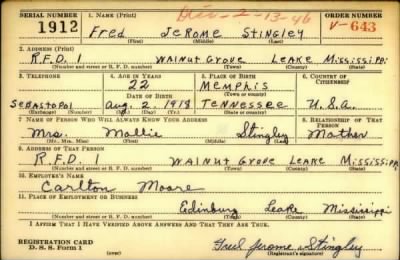 SERIAL NUMBER 1. NAME (Print) ORDER NUMBER
Div-2-13-46
1912 Fred JeRome StiNgley V-643
(First) (Middle) (Last)
2. ADDRESS (Print)
R.F.D. 1 WaiNut Grove Leake Mississippi
(Number and street or R. F. D. number) (Town) (County) (State)
3. TELEPHONE 4. AGE IN YEARS 5. PLACE OF BIRTH 6. COUNTRY OF CITIZENSHIP
22 Memphis
DATE OF BIRTH (Town or county)
Sebastopol Aug. 2, 1918 Tennessee U.S.A.
(Exchange) (Number) (Mo.) (Day) (Yr.) (State or country)
7. NAME OF PERSON WHO WILL ALWAYS KNOW YOUR ADDRESS 8. RELATIONSHIP OF THAT PERSON
Mrs. Mollie Stingley Mother
(Mr., Mrs., Miss) (First) (Middle) (Last)
9. ADDRESS OF THAT PERSON
R.F.D. 1 WaiNut Grove Leake Mississippi
(Number and street or R. F. D. number) (Town) (County) (State)
10. EMPLOYER'S NAME
Carlton Moore
11. PLACE OF EMPLOYMENT OR BUSINESS
Edinburg Leake Mississippi
(Number and street or R. F. D. number) (Town) (County) (State)
I AFFIRM THAT I HAVE VERIFIED ABOVE ANSWERS AND THAT THEY ARE TRUE.
REGISTRATION CARD
D. S. S. Form 1 (over) Fred Jerome Stingley
(Registrant's signature)